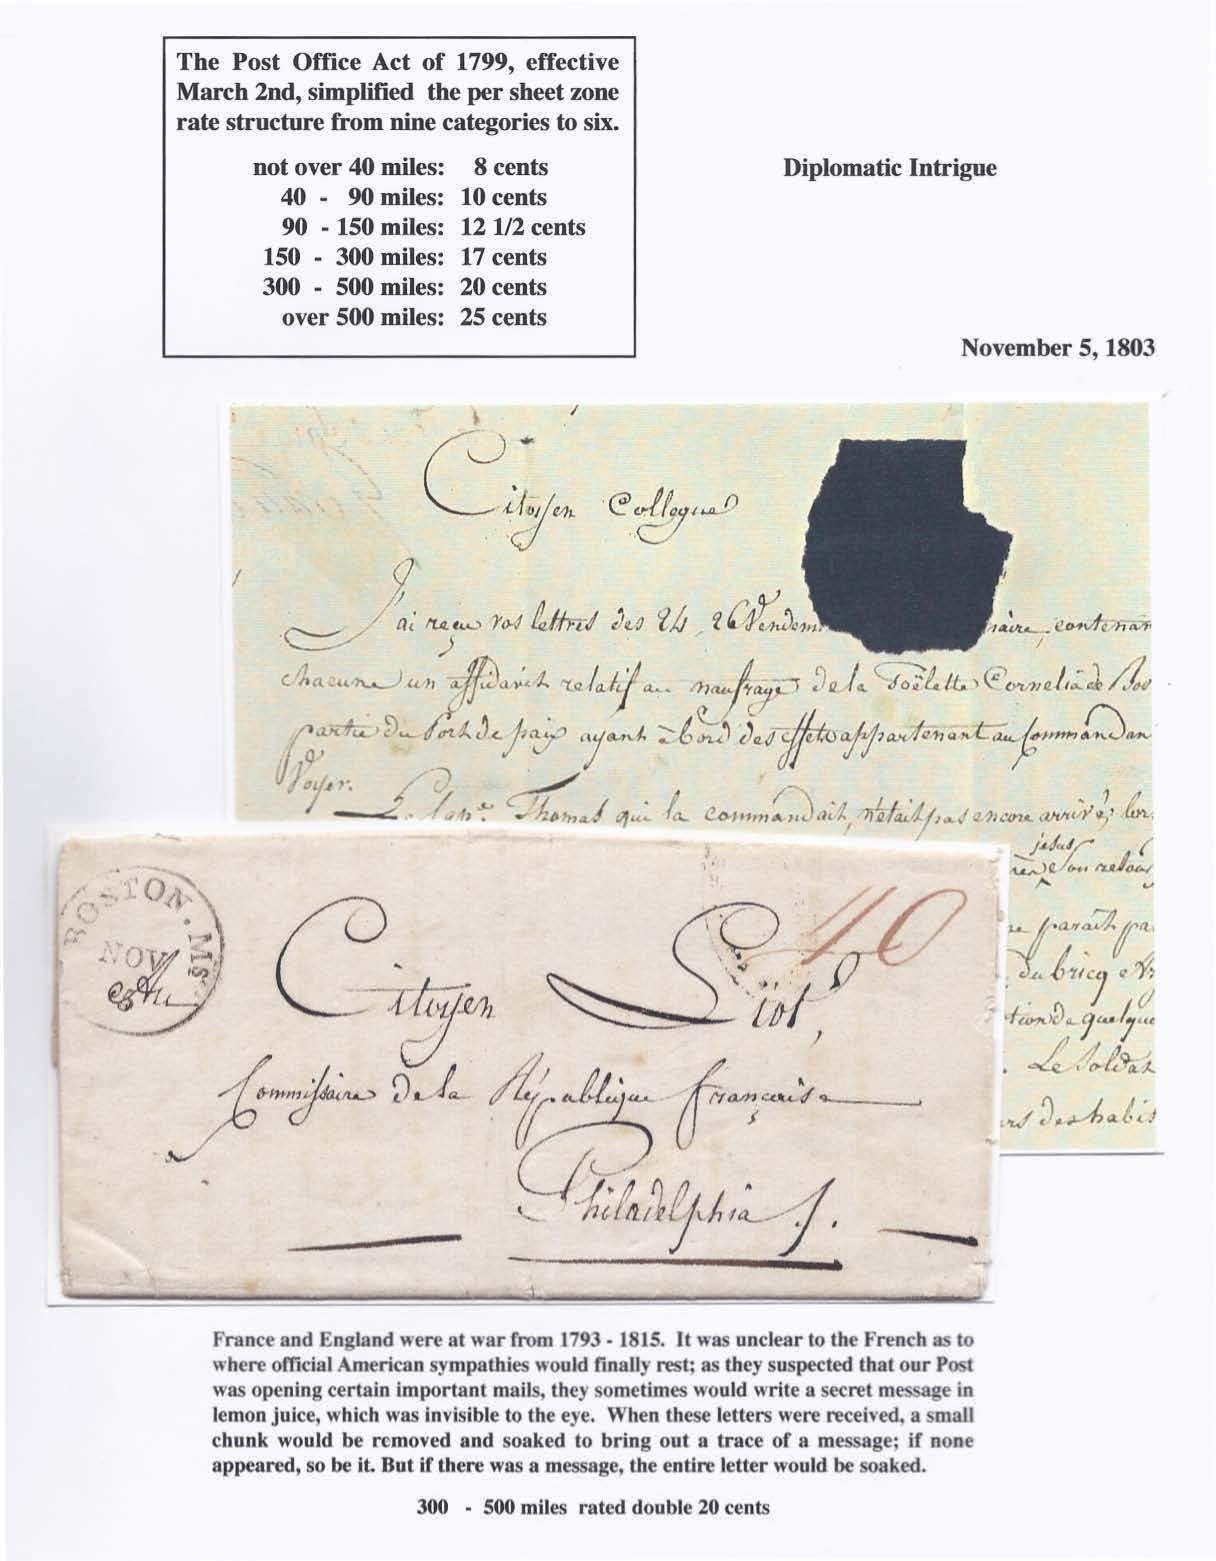 The Post Office Act of 1799, effective
March 2nd, simplified the per sheet zone
rate structure from nine categories to six.
not over 40 miles: 8 cents
40 - 90 miles: 10 cents
90 - 150 miles: 12 1/2 cents
150 - 300 miles: 17 cents
300 - 500 miles: 20 cents
over 500 miles: 25 cents
Diplomatic Intrigue
November 5, 1803
Citoyen Collegue
J'ai reçu vos lettres des 24, 26 Vendem naire, contenan
chacune un affidavit relatif au naufrage de la Goëlette Cornelia de Bos
partie du Port de paix ayant à bord des effets appartenant au Comman dan
Voyer.
Le Cap.ne Thomas qui la commandait, n'était pas encore arrivé; lors
jesus
son retour
ne parait pa
du bricq
tion de quelque
Le Soldat
urs des habit
BOSTON. Ms.
NOV
40
Citoyen Liot,
Commissaire de la République française
Philadelphia /.
France and England were at war from 1793 - 1815. It was unclear to the French as to
where official American sympathies would finally rest; as they suspected that our Post
was opening certain important mails, they sometimes would write a secret message in
lemon juice, which was invisible to the eye. When these letters were received, a small
chunk would be removed and soaked to bring out a trace of a message; if none
appeared, so be it. But if there was a message, the entire letter would be soaked.
300 - 500 miles rated double 20 cents